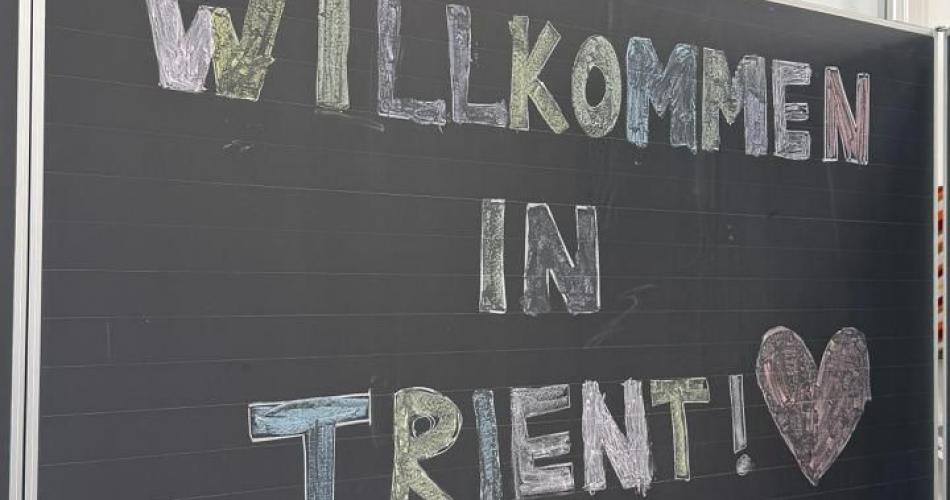 WILLKOMMEN
IN
TRIENT!